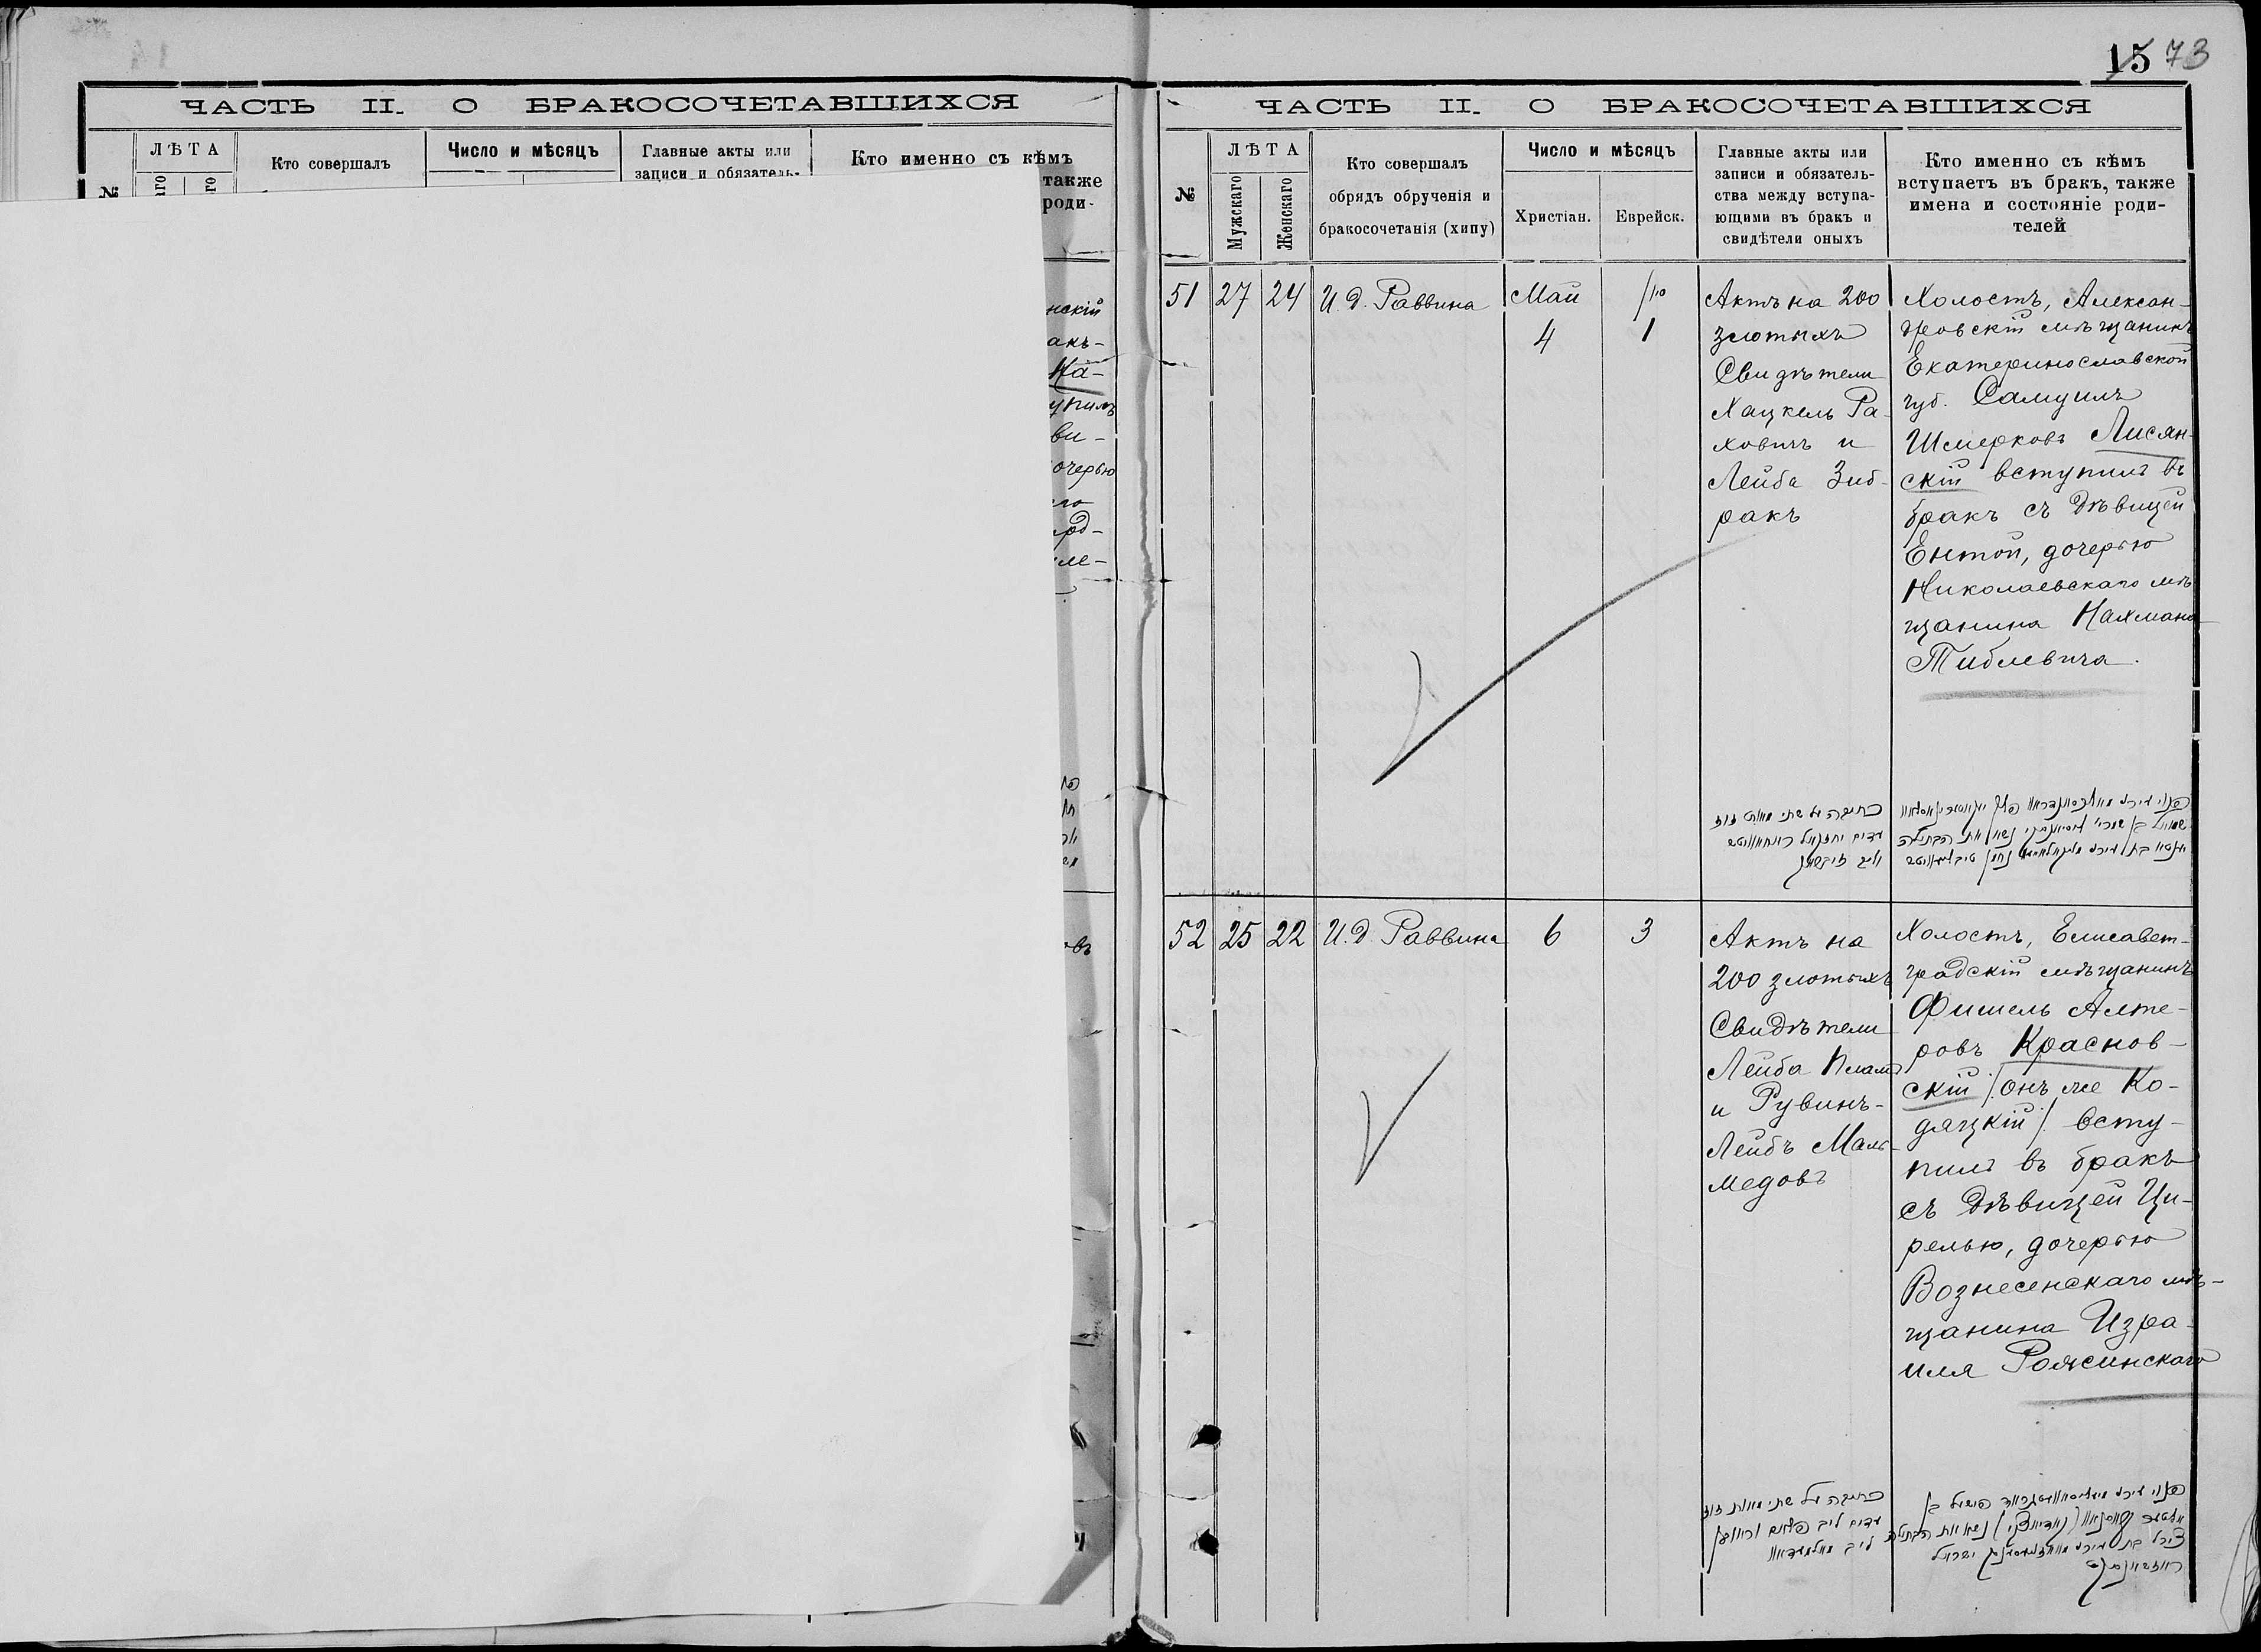 15 73
ЧАСТЬ II. О БРАКОСОЧЕТАВШИХСЯ
№
ЛѢТА
Кто совершалъ
Число и мѣсяцъ
Главные акты или
записи и обязатель-
Кто именно съ кѣмъ
также
роди-
нскій
акъ-
На-
упилъ
ви-
очерью
ЧАСТЬ II. О БРАКОСОЧЕТАВШИХСЯ
№
ЛѢТА
Мужскаго
Женскаго
Кто совершалъ
обрядъ обрученія и
бракосочетанія (хипу)
Число и мѣсяцъ
Христіан.
Еврейск.
Главные акты или
записи и обязатель-
ства между вступа-
ющими въ бракъ и
свидѣтели оныхъ
Кто именно съ кѣмъ
вступаетъ въ бракъ, также
имена и состояніе роди-
телей
51
27
24
И. д. Раввина
Май
4
סיון
1
Актъ на 200
злотыхъ
Свидѣтели
Хацкель Ра-
ховичъ и
Лейба Зиб-
ракъ
Холостъ, Алексан-
дровскій мѣщанинъ
Екатеринославской
губ. Самуилъ
Шмерковъ Лисян-
скій вступилъ въ
бракъ съ дѣвицей
Ентой, дочерью
Николаевскаго мѣ-
щанина Нахмана
Тиблевича.
כתובה על שתי מאות זוז
עדים יחזקאל
הפנוי עירני
נשא את הבתולה
52
25
22
И. д. Раввина
6
3
Актъ на
200 злотыхъ
Свидѣтели
Лейба Пламъ
и Рувинъ-
Лейбъ Маль-
медовъ
Холостъ, Елисавет-
градскій мѣщанинъ
Фишель Алте-
ровъ Краснов-
скій /:онъ же Ко-
дяцкій:/ всту-
пилъ въ бракъ
съ дѣвицей Ци-
релью, дочерью
Вознесенскаго мѣ-
щанина Изра-
иля Рожинскаго
כתובה על שתי מאות זוז
עדים ליב
הפנוי עירני
נשא את הבתולה